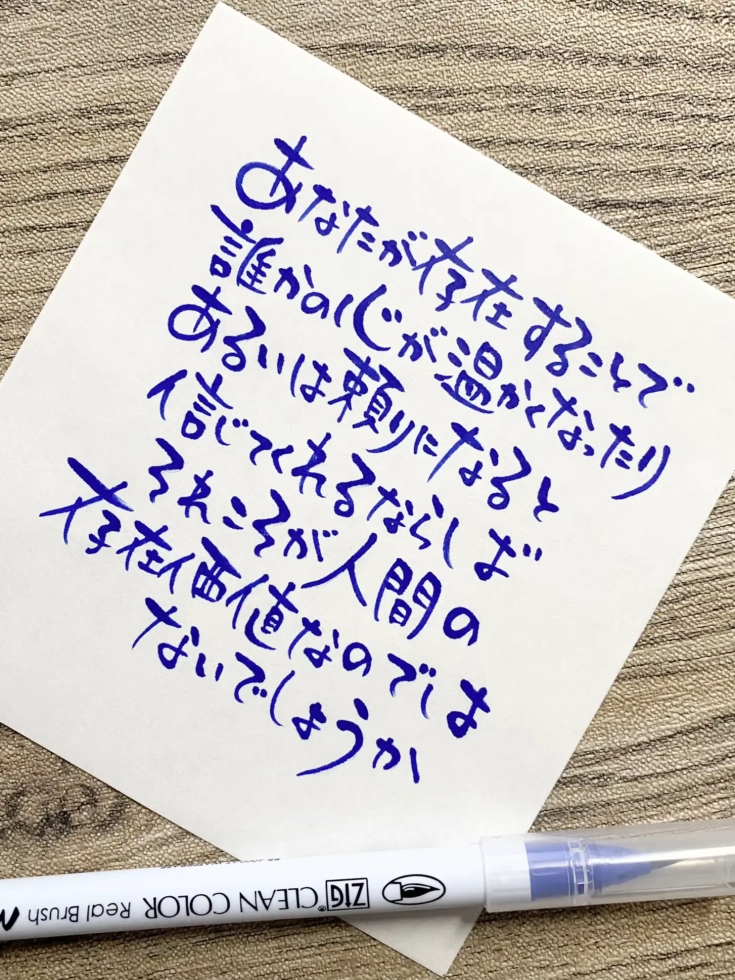 あなたが存在することで
誰かの心が温かくなったり
あるいは頼りになると
信じてくれるならば
それこそが人間の
存在価値なのでは
ないでしょうか
ZIG® CLEAN COLOR Real Brush